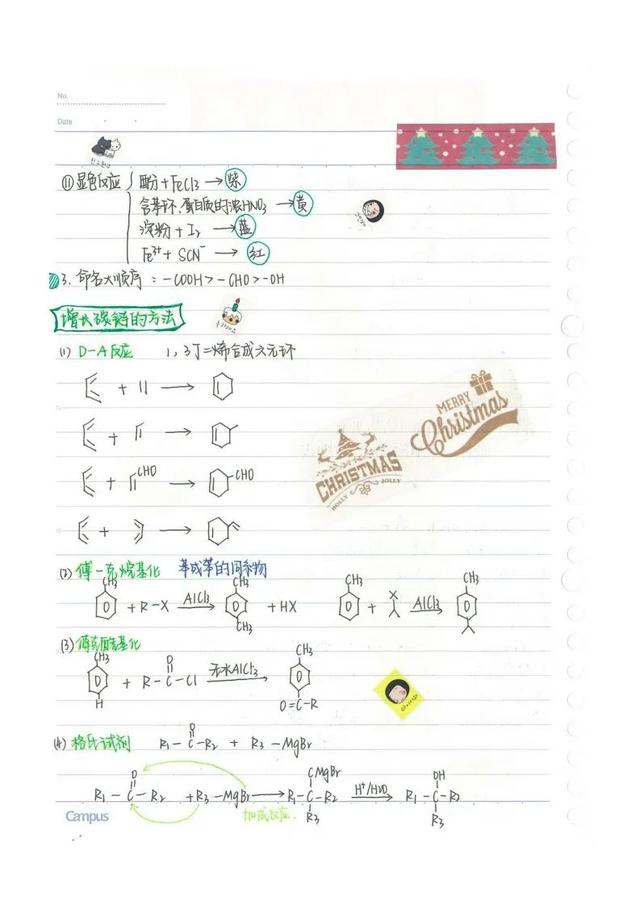 No.
Date
(11) 显色反应 { 酚 + FeCl3 → 紫
含苯环、蛋白质的浓HNO3 → 黄
淀粉 + I2 → 蓝
Fe3+ + SCN- → 红
3. 命名大顺序: -COOH > -CHO > -OH
增长碳链的方法
(1) D-A反应 1,3丁二烯合成六元环
MERRY Christmas
CHRISTMAS
HOLLY JOLLY
+ →
+ →
+ CHO → CHO
+ →
(2) 傅-克烷基化 苯或苯的同系物
CH3 + R-X AlCl3→ CH3 CH3 + HX CH3 + X AlCl3→ CH3
(3) 傅克酰基化
CH3 H + R-C-Cl O 无水AlCl3→ CH3 O=C-R
(4) 格氏试剂 R1-C-R2 O + R3-MgBr
R1-C-R2 O + R3-MgBr → R1-C-R2 OMgBr R3 H+/H2O→ R1-C-R2 OH R3
加成反应
Campus